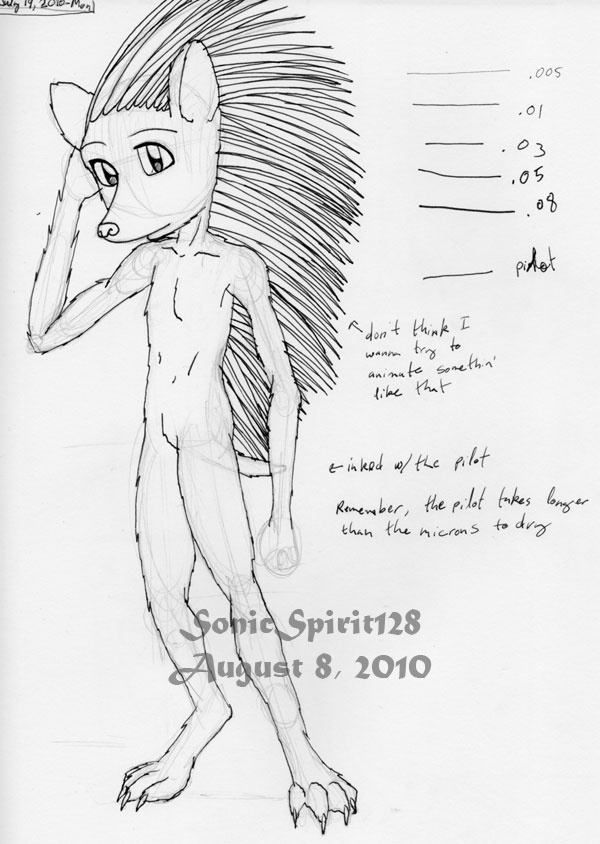 July 19, 2010-Mon
.005
.01
.03
.05
.08
pilot
don't think I
wanna try to
animate somethin'
like that
inked w/ the pilot
Remember, the pilot takes longer
than the microns to dry
SonicSpirit128
August 8, 2010